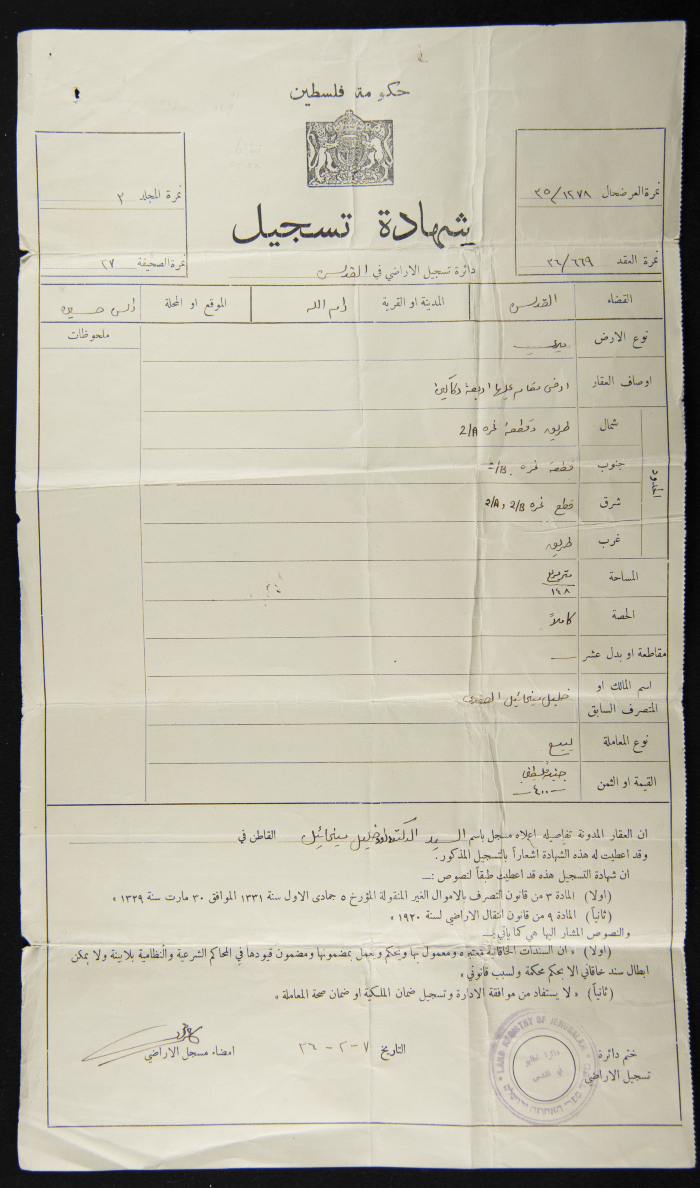 حكومة فلسطين
نمرة العرضحال ٣٥/١٢٧٨
نمرة المجلد ٢
شهادة تسجيل
نمرة العقد ٣٦/٦٦٩
نمرة الصحيفة ٢٧
دائرة تسجيل الاراضي في القدس
القضاء القدس المدينة او القرية رام الله الموقع او المحلة
نوع الارض
ملحوظات
اوصاف العقار ارض مقام عليها اربعة دكاكين
الحدود
شمال طريق وقطعة نمره 2/A
جنوب قطعة نمره
شرق قطع نمره 2/B و 2/A
غرب طريق
المساحة متر مربع ١٤٨
الحصة كاملاً
مقاطعة او بدل عشر —
اسم المالك او
المتصرف السابق خليل ميخائيل
نوع المعاملة بيع
القيمة او الثمن جنيه فلسطيني
-٤٠٠-
ان العقار المدونة تفاصيله اعلاه مسجل باسم السيد الدكتور خليل ميخائيل القاطن في
وقد اعطيت له هذه الشهادة اشعاراً بالتسجيل المذكور.
ان شهادة التسجيل هذه قد اعطيت طبقاً لنصوص :—
(اولا) المادة ٣ من قانون التصرف بالاموال الغير المنقولة المؤرخ ٥ جمادى الاول سنة ١٣٣١ الموافق ٣٠ مارت سنة ١٣٢٩ »
(ثانياً) المادة ٩ من قانون انتقال الاراضي لسنة ١٩٢٠ »
والنصوص المشار اليها هي كما يأتي :—
(اولا) « ان السندات الخاقانية معتبره ومعمول بها ويحكم ويعمل بمضمونها ومضمون قيودها في المحاكم الشرعية والنظامية بلا بينة ولا يمكن
ابطال سند خاقاني الا بحكم محكمة ولسبب قانوني »
(ثانياً) « لا يستفاد من موافقة الادارة وتسجيل ضمان الملكية او ضمان صحة المعاملة »
ختم دائرة
تسجيل الاراضي
LAND REGISTRY OF JERUSALEM
التاريخ ٧-٢-٣٦
امضاء مسجل الاراضي